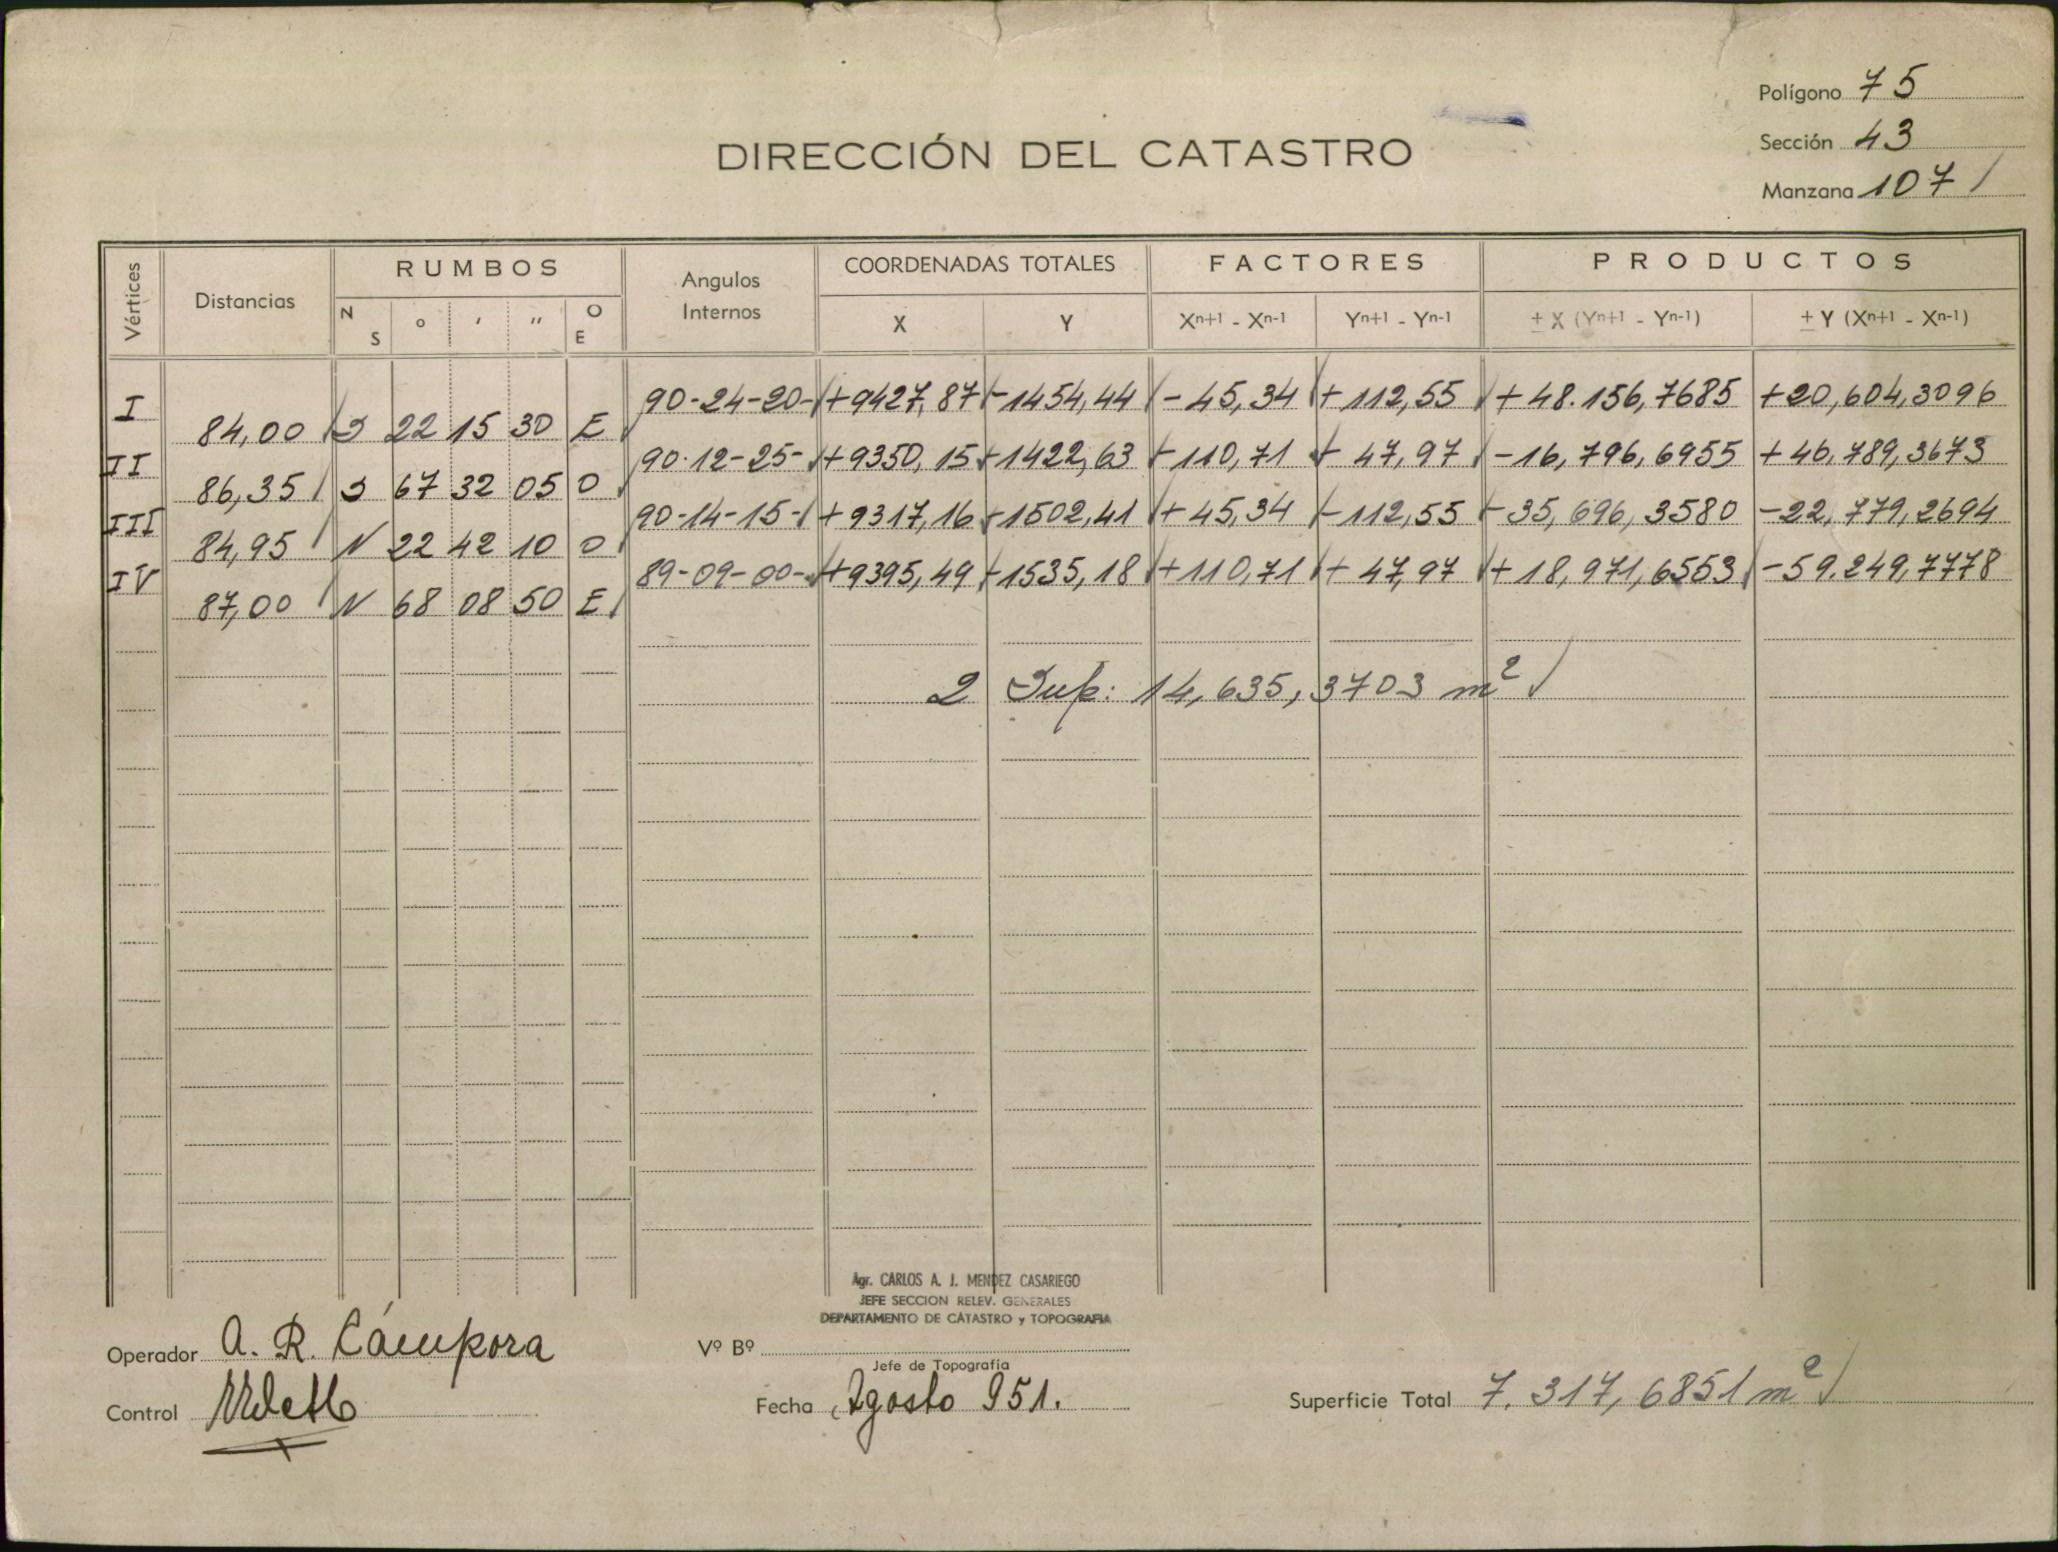 Polígono 75
Sección 43
Manzana 107 /
DIRECCIÓN DEL CATASTRO
Vértices Distancias RUMBOS Angulos Internos COORDENADAS TOTALES FACTORES PRODUCTOS
N S ° ' '' O E X Y Xn+1 - Xn-1 Yn+1 - Yn-1 ± X (Yn+1 - Yn-1) ± Y (Xn+1 - Xn-1)
I 90-24-20- +9427,87 -1454,44 - 45,34 + 112,55 + 48.156,7685 +20,604,3096
84,00 S 22 15 30 E
II 90-12-25- +9350,15 +1422,63 -110,71 + 47,97 -16,796,6955 +46,789,3673
86,35 S 67 32 05 O
III 90-14-15- +9317,16 +1502,41 + 45,34 -112,55 -35,696,3580 -22,779,2694
84,95 N 22 42 10 O
IV 89-09-00- +9395,49 +1535,18 +110,71 + 47,97 + 18,971,6553 -59.249,7778
87,00 N 68 08 50 E
2 Sup: 14,635,3703 m²
Agr. CARLOS A. J. MENDEZ CASARIEGO
JEFE SECCION RELEV. GENERALES
DEPARTAMENTO DE CATASTRO y TOPOGRAFIA
Operador A. R. Cámpora
Vº Bº
Jefe de Topografía
Control
Fecha Agosto 951.
Superficie Total 7.317,6851 m²